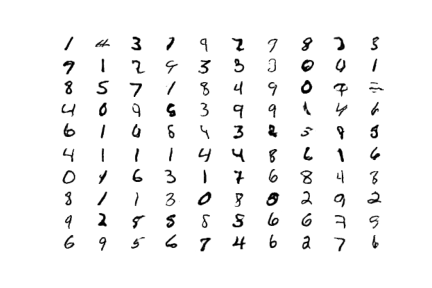 1 4 3 1 9 2 7 8 2 3
9 1 2 9 3 3 3 0 0 1
8 5 7 1 8 4 9 0 7
4 0 9 6 3 9 9 1 4 6
6 1 6 8 4 3 2 5 9 5
4 1 1 1 4 4 8 6 1 6
0 4 6 3 1 7 6 8 4 8
8 1 1 3 0 8 8 2 9 2
9 2 8 8 8 5 6 6 7 9
6 9 5 6 7 4 6 2 7 6